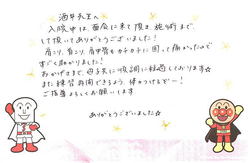 酒井先生へ
入院中は面会に来て頂き施術まで
して頂いてありがとうございました!
肩こり、首こり、肩甲骨もカチカチに固って痛かったので
すごく助かりました!
おかげさまで、母子共に順調に経過しております☆
また練習再開できるよう、体力つけるぞー!
ご指導よろしくお願いします
ありがとうございました☆